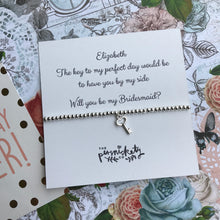 Elizabeth
The key to my perfect day would be
to have you by my side
Will you be my Bridesmaid?
THE